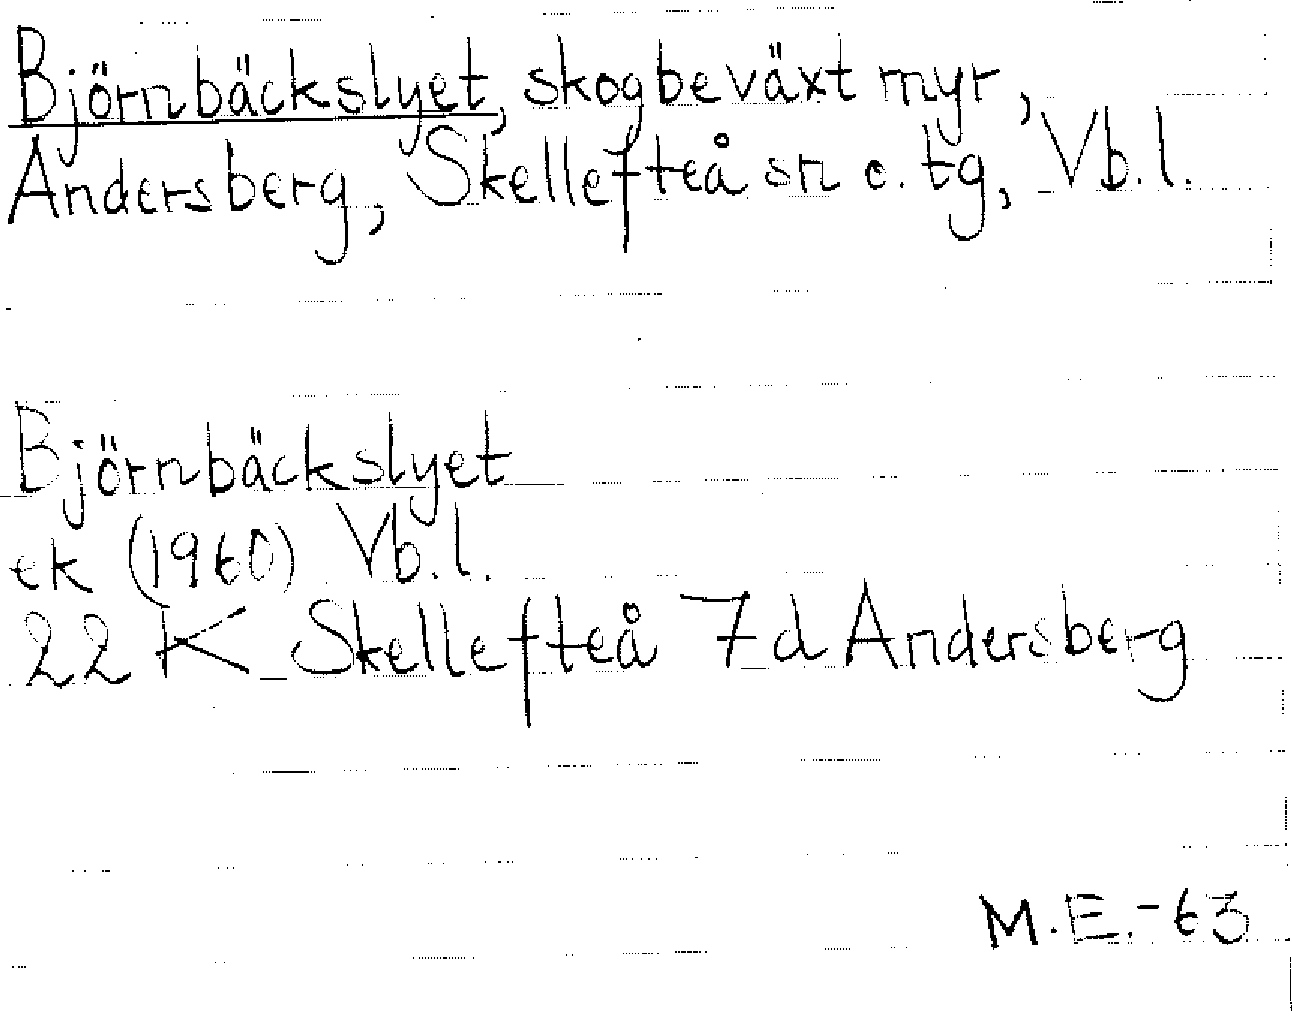 Björnbäckslyet, skogbeväxt myr,
Andersberg, Skellefteå sn o. tg, Vb.l.
Björnbäckslyet
ek (1960) Vb.l.
22 K Skellefteå 7d Andersberg
M.E.-63